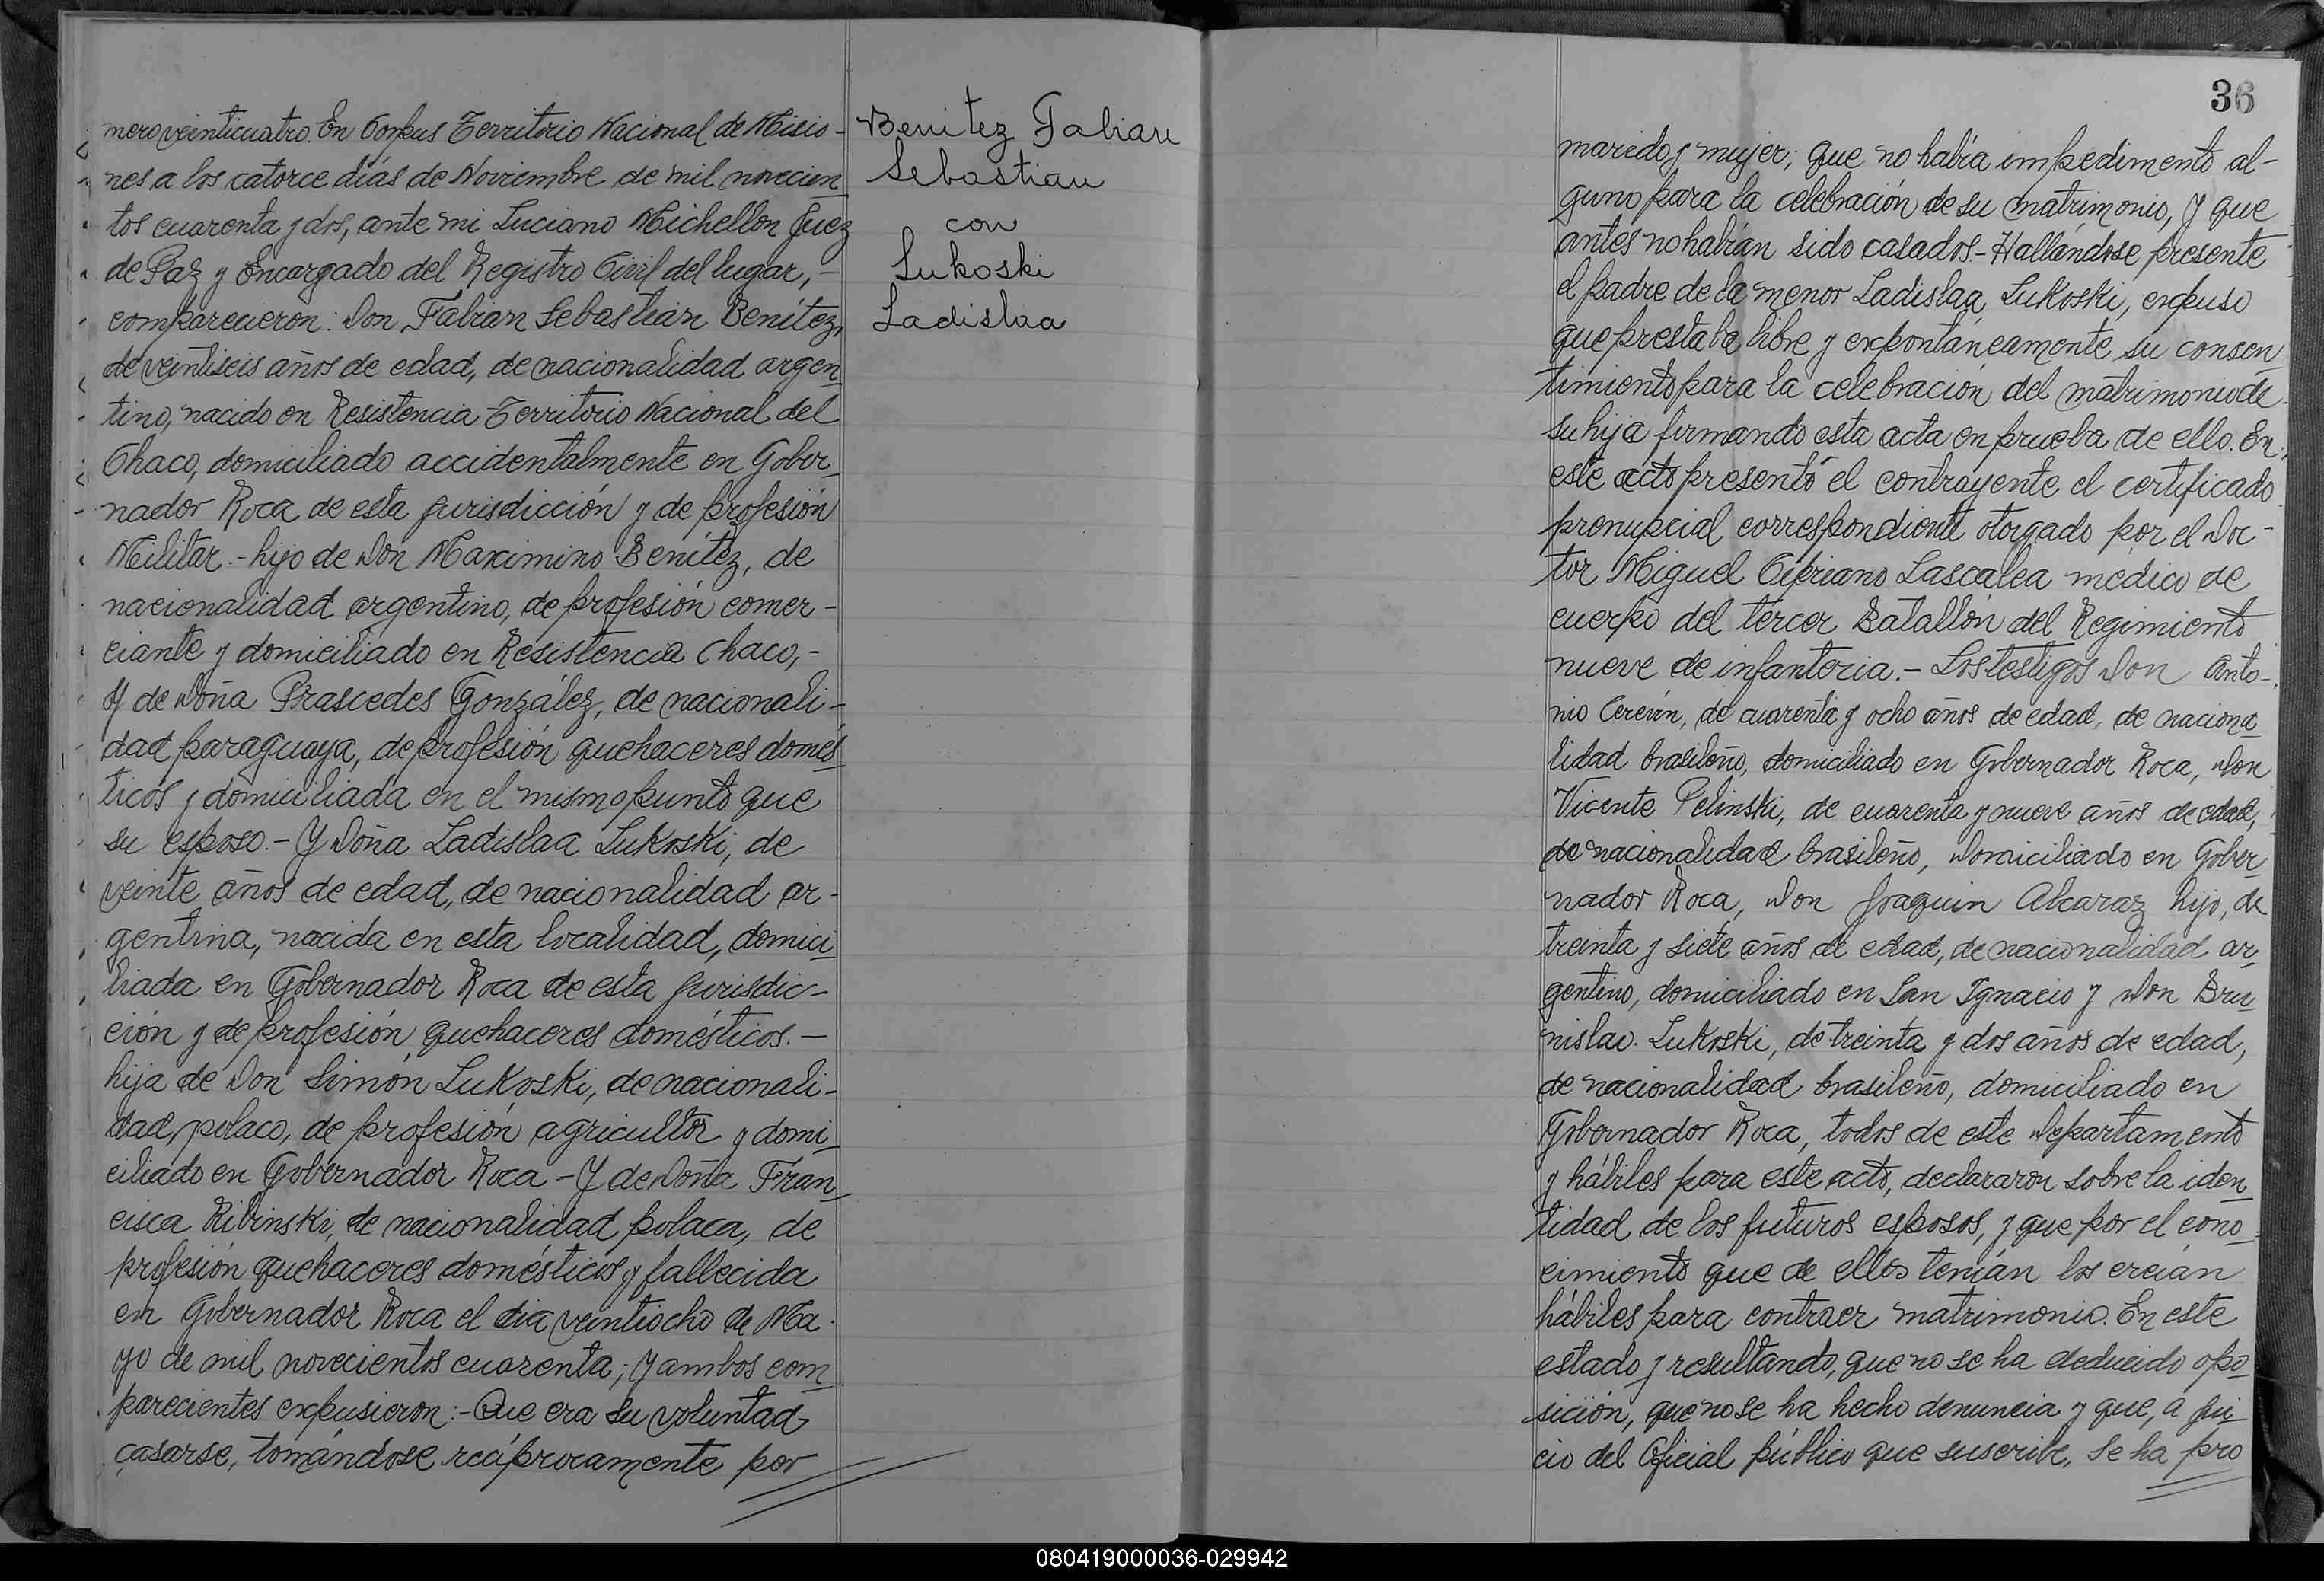 mero veinticuatro. En Corpus Territorio Nacional de Misio-
nes a los catorce días de Noviembre de mil novecien
tos cuarenta y dos, ante mi Luciano Michellon Juez
de Paz y Encargado del Registro Civil del lugar,-
comparecieron: Don Fabian Sebastian Benítez,
de veintiseis años de edad, de nacionalidad argen
tino, nacido en Resistencia Territorio Nacional del
Chaco, domiciliado accidentalmente en Gober
nador Roca de esta jurisdicción y de profesión
Militar.- hijo de Don Maximino Benítez, de
nacionalidad argentino, de profesión comer-
ciante y domiciliado en Resistencia Chaco,-
Y de Doña Prascedes González, de nacionali-
dad paraguaya, de profesión quehaceres domés
ticos y domiciliada en el mismo punto que
su esposo.- Y Doña Ladislaa Lukoski, de
veinte años de edad, de nacionalidad ar-
gentina, nacida en esta localidad, domici
liada en Gobernador Roca de esta jurisdic-
ción y de profesión quehaceres domésticos.-
hija de Don Simón Lukoski, de nacionali-
dad polaco, de profesión agricultor y domi
ciliado en Gobernador Roca - Y de Doña Fran
cisca Ribinski, de nacionalidad polaca, de
profesión quehaceres domésticos y fallecida
en Gobernador Roca el dia veintiocho de Ma-
yo de mil novecientos cuarenta; y ambos com
parecientes expusieron:- Que era su voluntad
casarse, tomándose recíprocamente por
Benitez Fabian
Sebastian
con
Lukoski
Ladislaa
36
marido y mujer; que no había impedimento al-
guno para la celebración de su matrimonio, y que
antes no habían sido casados.- Hallándose presente
el padre de la menor Ladislaa Lukoski, expuso
que prestaba libre y expontáneamente su consen
timiento para la celebración del matrimonio de
su hija firmando esta acta en prueba de ello. En
este acto presentó el contrayente el certificado
prenupcial correspondiente otorgado por el Doc-
tor Miguel Cipriano Lascalea medico de
cuerpo del tercer Batallón del Regimiento
nueve de infanteria.- Los testigos Don Anto-
nio Cerevin, de cuarenta y ocho años de edad, de naciona
lidad brasileño, domiciliado en Gobernador Roca, Don
Vicente Pelinski, de cuarenta y nueve años de edad,
de nacionalidad brasileño, domiciliado en Gober
nador Roca, Don Joaquin Alcaraz hijo, de
treinta y siete años de edad, de nacionalidad ar
gentino, domiciliado en San Ignacio y Don Bru
nislao Lukoski, de treinta y dos años de edad,
de nacionalidad brasileño, domiciliado en
Gobernador Roca, todos de este Departamento
y hábiles para este acto, declararon sobre la iden
tidad de los futuros esposos, y que por el cono
cimiento que de ellos tenían los creían
hábiles para contraer matrimonio. En este
estado y resultando, que no se ha deducido opo
sición, que no se ha hecho denuncia y que, a jui
cio del Oficial público que suscribe, se ha pro
080419000036-029942